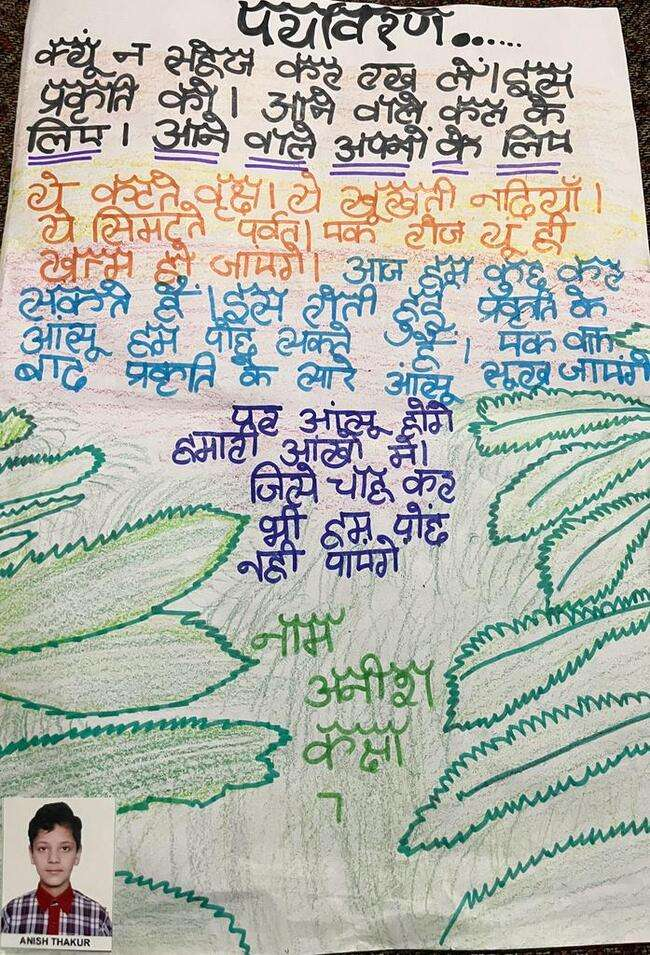 पर्यावरण......
क्यूं न सहेज कर रख लें। इस
प्रकृति को। आने वाले कल के
लिए। आने वाले अपनों के लिए
ये कटते वृक्ष। ये सूखती नदियाँ।
ये सिमटते पर्वत। एक रोज यू ही
खत्म हो जाएगे। आज हम कुछ कर
सकते हैं। इस रोती हुई प्रकृति के
आंसू हम पोंछ सकते हैं। एक वक्त
बाद प्रकृति के सारे आंसू सूख जाएंगे
पर आंसू होंगे
हमारी आंखों में।
जिसे चाह कर
भी हम पोंछ
नही पाएगे
नाम
अनीश
कक्षा
7
ANISH THAKUR